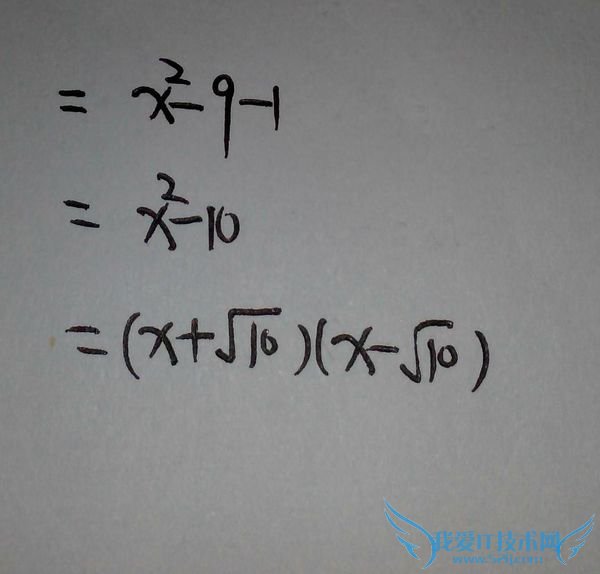 = x²-9-1
= x²-10
=(x+√10)(x-√10)
我爱IT技术网
www.52ij.com